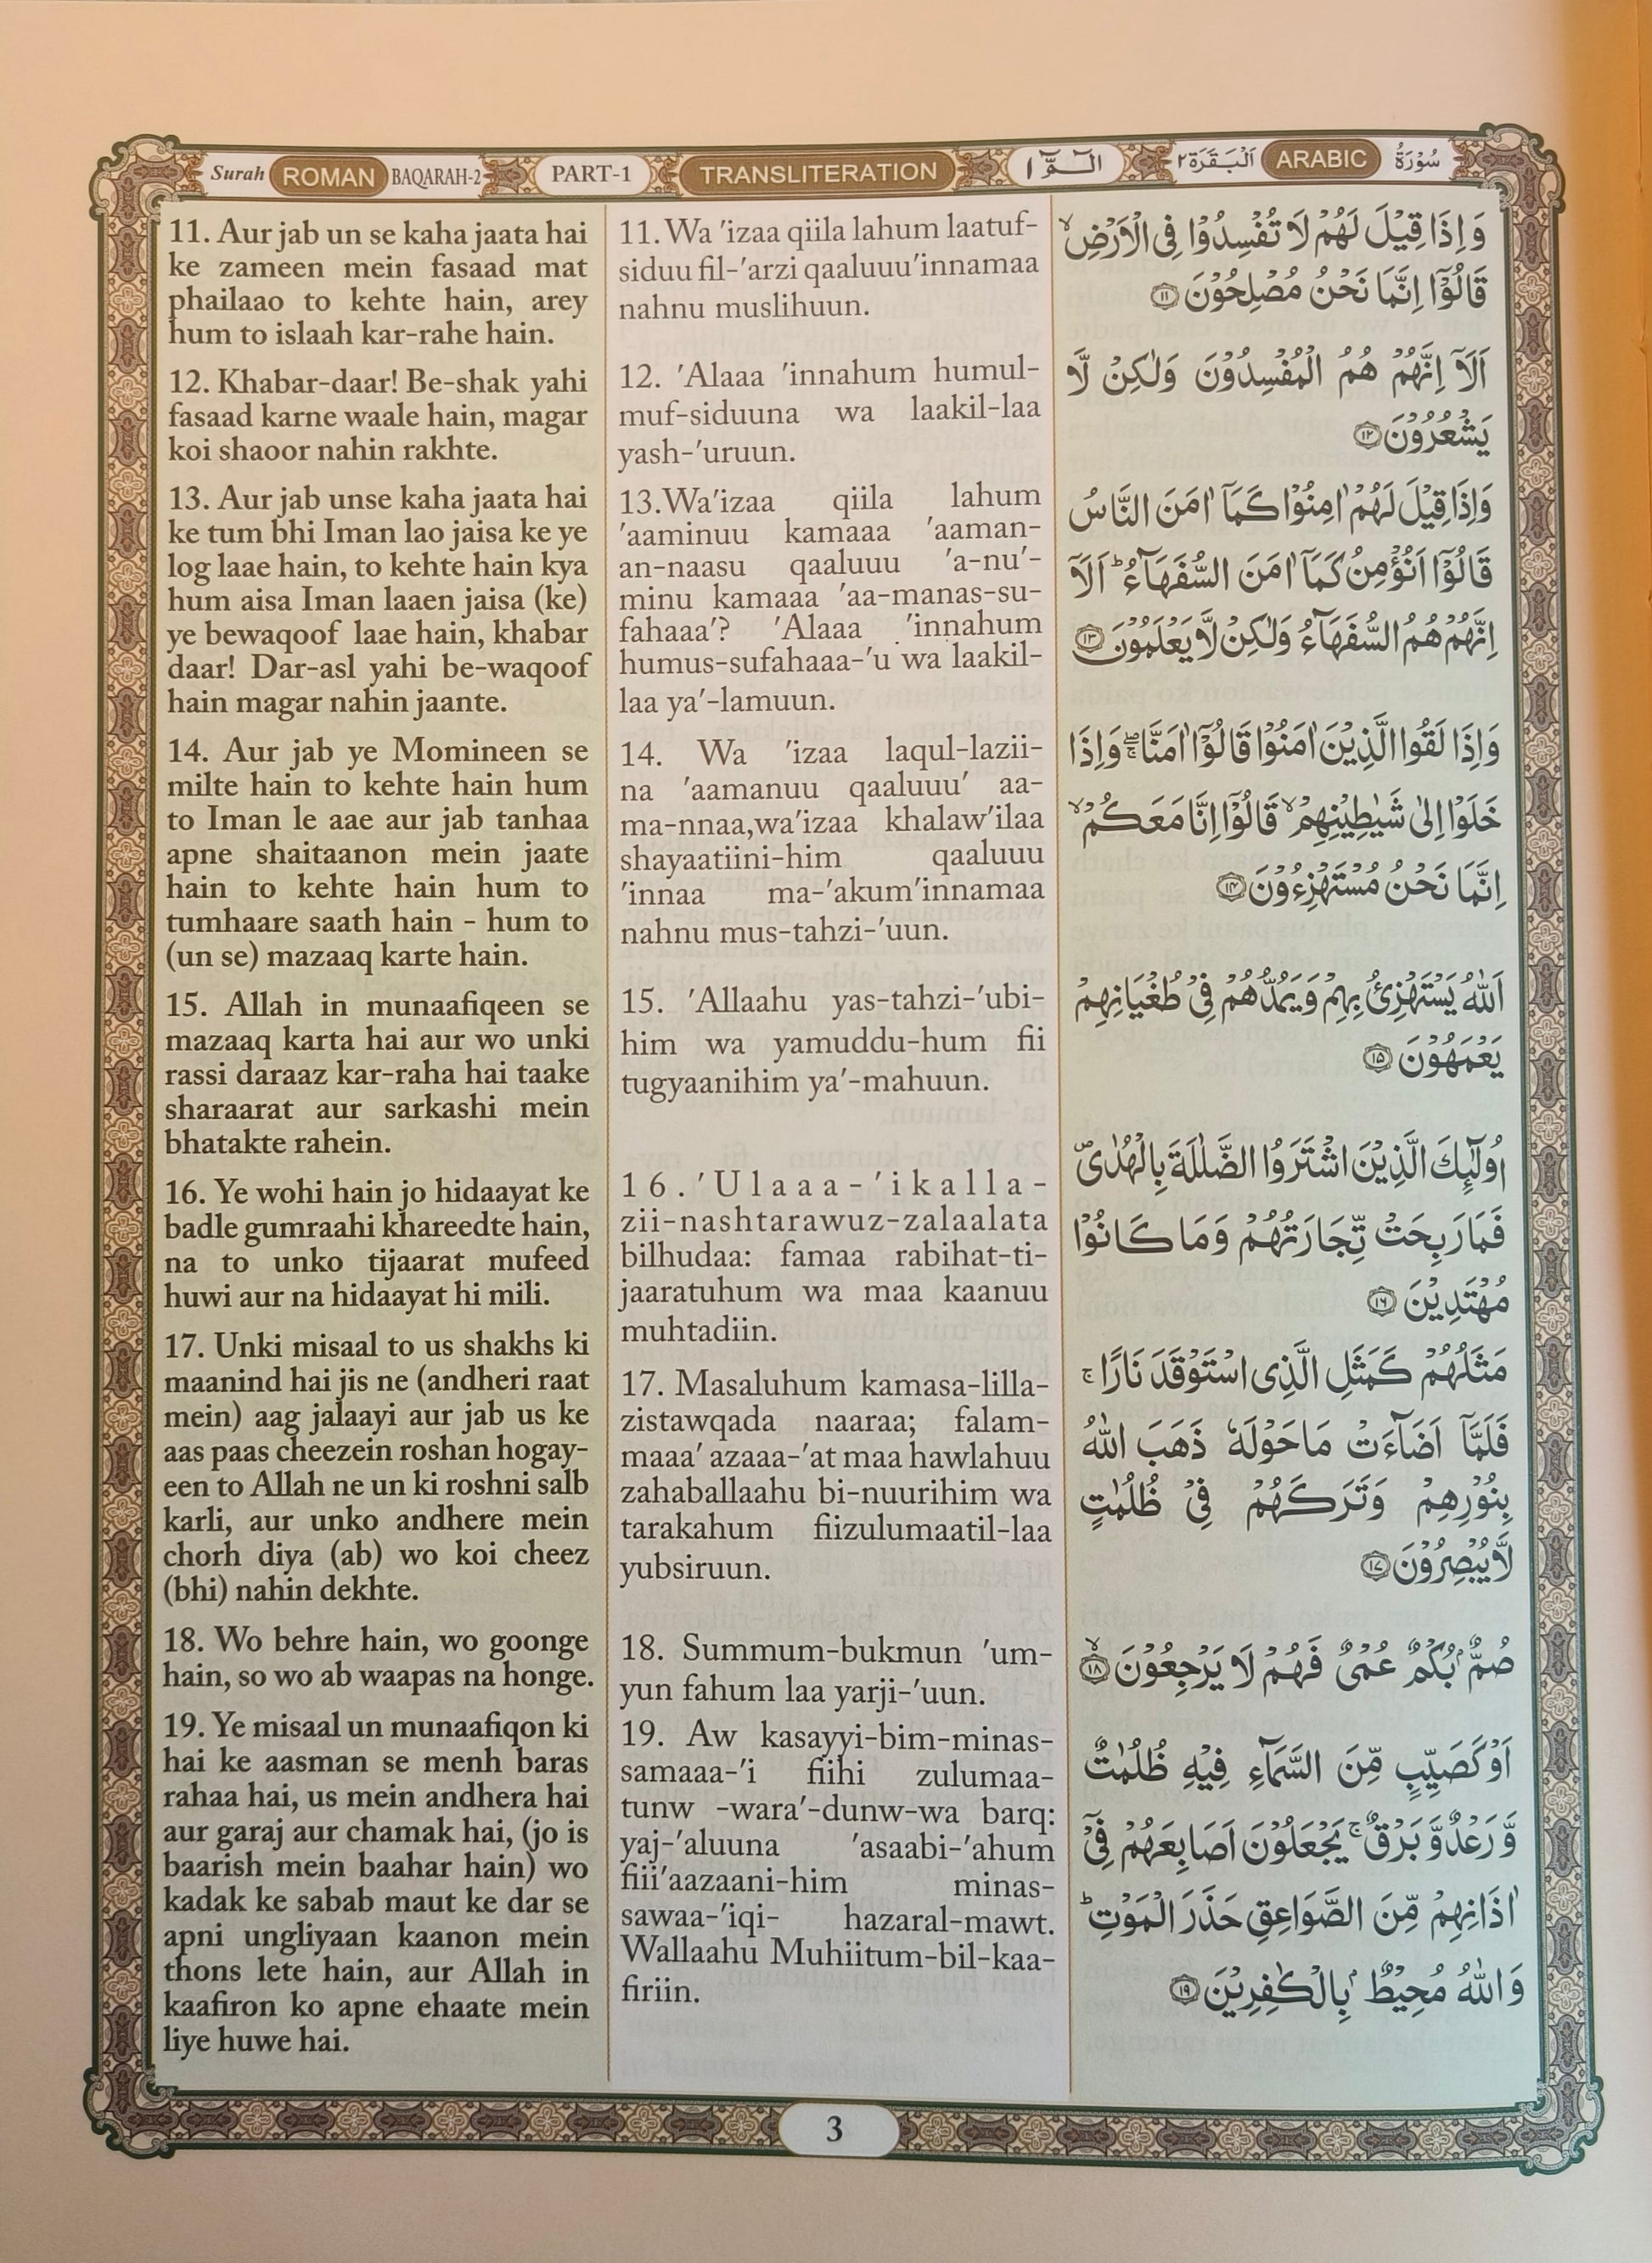 Surah ROMAN BAQARAH-2 PART-1 TRANSLITERATION الٓمّٓ ١ اَلْبَقَرَة ٢ ARABIC سُوْرَةُ
11. Aur jab un se kaha jaata hai
ke zameen mein fasaad mat
phailaao to kehte hain, arey
hum to islaah kar-rahe hain.
12. Khabar-daar! Be-shak yahi
fasaad karne waale hain, magar
koi shaoor nahin rakhte.
13. Aur jab unse kaha jaata hai
ke tum bhi Iman lao jaisa ke ye
log laae hain, to kehte hain kya
hum aisa Iman laaen jaisa (ke)
ye bewaqoof laae hain, khabar
daar! Dar-asl yahi be-waqoof
hain magar nahin jaante.
14. Aur jab ye Momineen se
milte hain to kehte hain hum
to Iman le aae aur jab tanhaa
apne shaitaanon mein jaate
hain to kehte hain hum to
tumhaare saath hain - hum to
(un se) mazaaq karte hain.
15. Allah in munaafiqeen se
mazaaq karta hai aur wo unki
rassi daraaz kar-raha hai taake
sharaarat aur sarkashi mein
bhatakte rahein.
16. Ye wohi hain jo hidaayat ke
badle gumraahi khareedte hain,
na to unko tijaarat mufeed
huwi aur na hidaayat hi mili.
17. Unki misaal to us shakhs ki
maanind hai jis ne (andheri raat
mein) aag jalaayi aur jab us ke
aas paas cheezein roshan hogay-
een to Allah ne un ki roshni salb
karli, aur unko andhere mein
chorh diya (ab) wo koi cheez
(bhi) nahin dekhte.
18. Wo behre hain, wo goonge
hain, so wo ab waapas na honge.
19. Ye misaal un munaafiqon ki
hai ke aasman se menh baras
rahaa hai, us mein andhera hai
aur garaj aur chamak hai, (jo is
baarish mein baahar hain) wo
kadak ke sabab maut ke dar se
apni ungliyaan kaanon mein
thons lete hain, aur Allah in
kaafiron ko apne ehaate mein
liye huwe hai.
11. Wa 'izaa qiila lahum laatuf-
siduu fil-'arzi qaaluuu'innamaa
nahnu muslihuun.
12. 'Alaaa 'innahum humul-
muf-siduuna wa laakil-laa
yash-'uruun.
13.Wa'izaa qiila lahum
'aaminuu kamaaa 'aaman-
an-naasu qaaluuu 'a-nu'-
minu kamaaa 'aa-manas-su-
fahaaa'? 'Alaaa 'innahum
humus-sufahaaa-'u wa laakil-
laa ya'-lamuun.
14. Wa 'izaa laqul-lazii-
na 'aamanuu qaaluuu' aa-
ma-nnaa,wa'izaa khalaw'ilaa
shayaatiini-him qaaluuu
'innaa ma-'akum'innamaa
nahnu mus-tahzi-'uun.
15. 'Allaahu yas-tahzi-'ubi-
him wa yamuddu-hum fii
tugyaanihim ya'-mahuun.
16.'Ulaaa-'ikalla-
zii-nashtarawuz-zalaalata
bilhudaa: famaa rabihat-ti-
jaaratuhum wa maa kaanuu
muhtadiin.
17. Masaluhum kamasa-lilla-
zistawqada naaraa; falam-
maaa' azaaa-'at maa hawlahuu
zahaballaahu bi-nuurihim wa
tarakahum fiizulumaatil-laa
yubsiruun.
18. Summum-bukmun 'um-
yun fahum laa yarji-'uun.
19. Aw kasayyi-bim-minas-
samaaa-'i fiihi zulumaa-
tunw -wara'-dunw-wa barq:
yaj-'aluuna 'asaabi-'ahum
fiii'aazaani-him minas-
sawaa-'iqi- hazaral-mawt.
Wallaahu Muhiitum-bil-kaa-
firiin.
وَاِذَا قِيْلَ لَهُمْ لَا تُفْسِدُوْا فِى الْاَرْضِۙ
قَالُوْۤا اِنَّمَا نَحْنُ مُصْلِحُوْنَ ۝۱۱
اَلَاۤ اِنَّهُمْ هُمُ الْمُفْسِدُوْنَ وَلٰكِنْ لَّا
يَشْعُرُوْنَ ۝۱۲
وَاِذَا قِيْلَ لَهُمْ اٰمِنُوْا كَمَاۤ اٰمَنَ النَّاسُ
قَالُوْۤا اَنُؤْمِنُ كَمَاۤ اٰمَنَ السُّفَهَآءُ ؕ اَلَاۤ
اِنَّهُمْ هُمُ السُّفَهَآءُ وَلٰكِنْ لَّا يَعْلَمُوْنَ ۝۱۳
وَاِذَا لَقُوا الَّذِيْنَ اٰمَنُوْا قَالُوْۤا اٰمَنَّا ۖۚ وَاِذَا
خَلَوْا اِلٰى شَيٰطِيْنِهِمْۙ قَالُوْۤا اِنَّا مَعَكُمْۙ
اِنَّمَا نَحْنُ مُسْتَهْزِءُوْنَ ۝۱۴
اَللّٰهُ يَسْتَهْزِئُ بِهِمْ وَيَمُدُّهُمْ فِىْ طُغْيَانِهِمْ
يَعْمَهُوْنَ ۝۱۵
اُولٰٓئِكَ الَّذِيْنَ اشْتَرَوُا الضَّلٰلَةَ بِالْهُدٰى ۪
فَمَا رَبِحَتْ تِّجَارَتُهُمْ وَمَا كَانُوْا
مُهْتَدِيْنَ ۝۱۶
مَثَلُهُمْ كَمَثَلِ الَّذِى اسْتَوْقَدَ نَارًا ۚ
فَلَمَّاۤ اَضَآءَتْ مَا حَوْلَهٗ ذَهَبَ اللّٰهُ
بِنُوْرِهِمْ وَتَرَكَهُمْ فِىْ ظُلُمٰتٍ
لَّا يُبْصِرُوْنَ ۝۱۷
صُمٌّۢ بُكْمٌ عُمْىٌ فَهُمْ لَا يَرْجِعُوْنَ ۙ۝۱۸
اَوْ كَصَيِّبٍ مِّنَ السَّمَآءِ فِيْهِ ظُلُمٰتٌ
وَّرَعْدٌ وَّبَرْقٌ ۚ يَجْعَلُوْنَ اَصَابِعَهُمْ فِىْۤ
اٰذَانِهِمْ مِّنَ الصَّوَاعِقِ حَذَرَ الْمَوْتِ ؕ
وَاللّٰهُ مُحِيْطٌۢ بِالْكٰفِرِيْنَ ۝۱۹
3